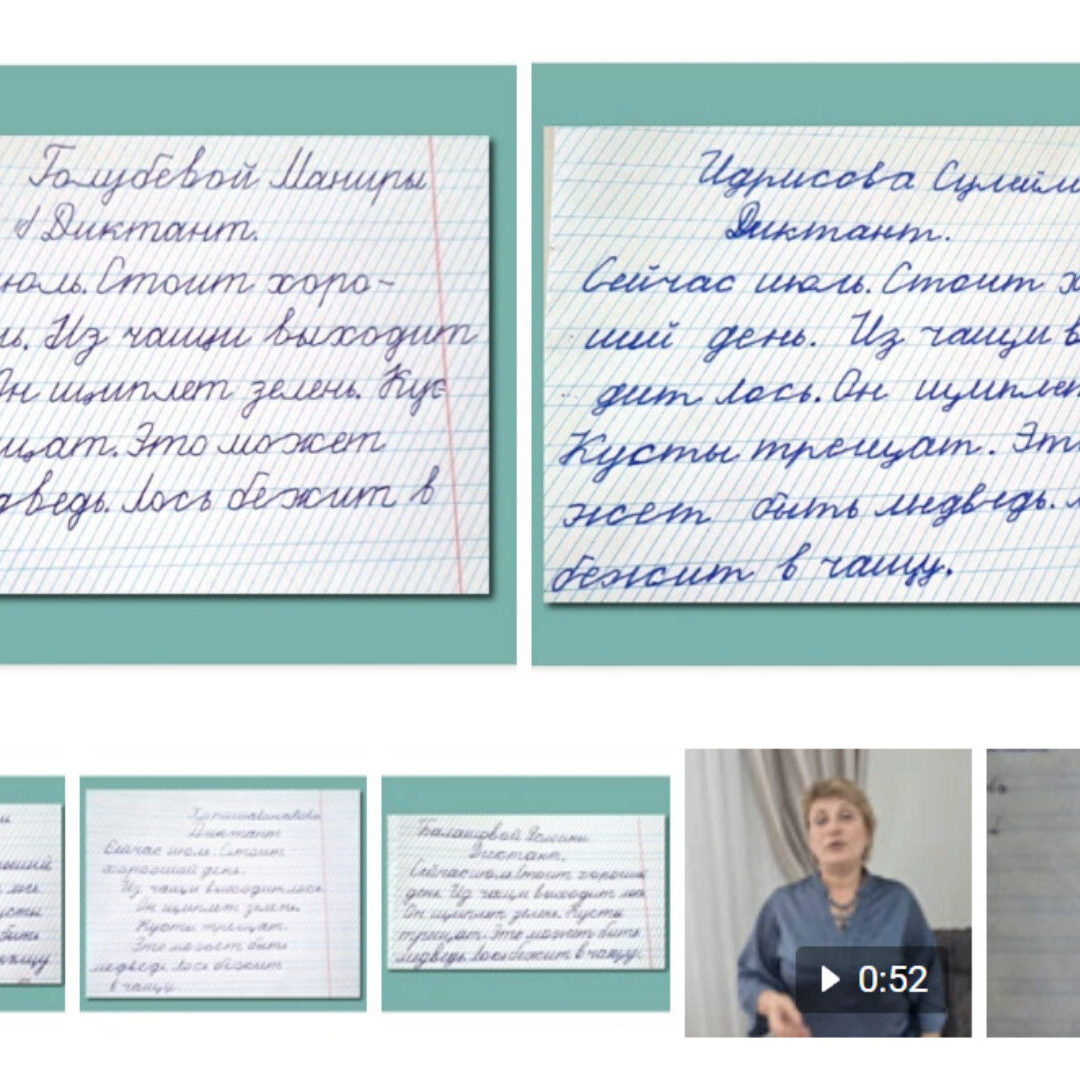 Голубевой Маниры
Диктант.
юль. Стоит хоро-
нь. Из чащи выходит
Он щиплет зелень. Кус-
щат. Это может
дведь. Лось бежит в
Идрисова Сулейм
Диктант.
Сейчас июль. Стоит х
ший день. Из чащи в
дит лось. Он щиплет
Кусты трещат. Эт
жет быть медведь. Л
бежит в чащу.
Диктант
Сейчас июль. Стоит
хороший день.
Из чащи выходит лось
Он щиплет зелень.
Кусты трещат.
Это может быть
медведь. Лось бежит
в чащу
Балашовой
Диктант.
Сейчас июль. Стоит хороший
день. Из чащи выходит лось
Он щиплет зелень. Кусты
трещат. Это может быть
медведь. Лось бежит в чащу.
0:52